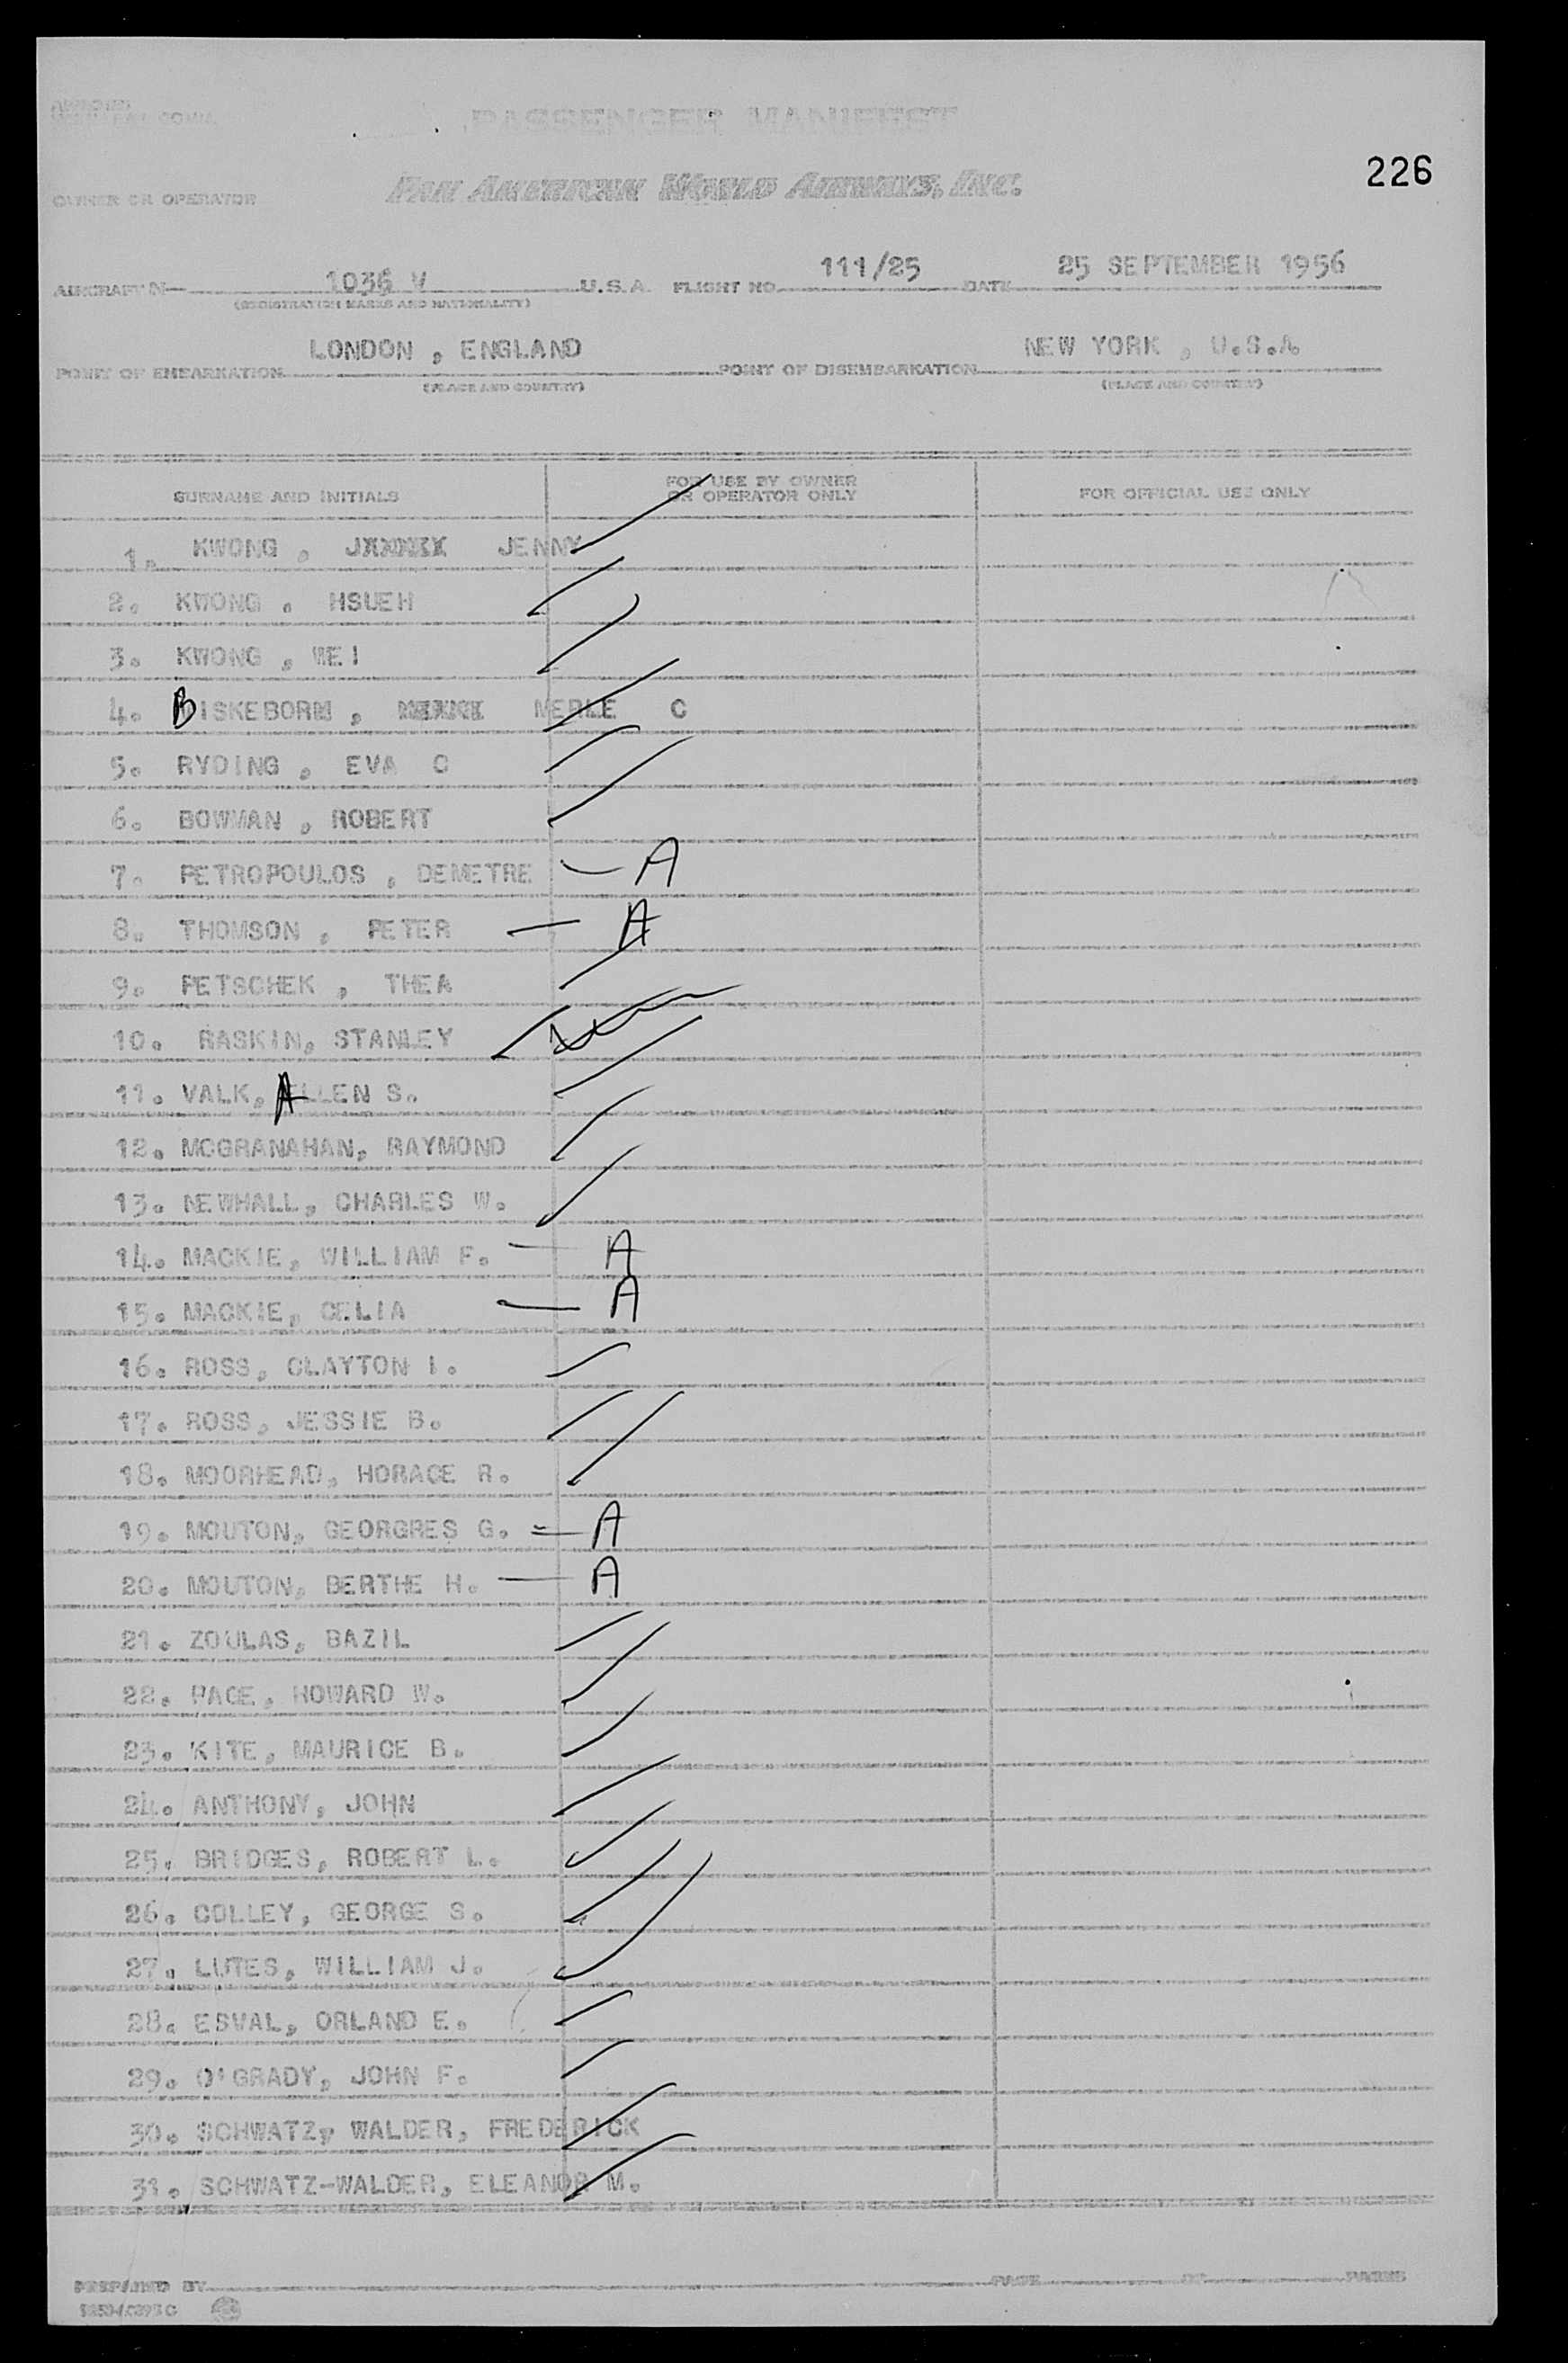 PASSENGER MANIFEST
226
OWNER OR OPERATOR PAN AMERICAN WORLD AIRWAYS, INC.
AIRCRAFT N- 1036 V U.S.A. FLIGHT NO. 111/25 DATE 25 SEPTEMBER 1956
(REGISTRATION MARKS AND NATIONALITY)
POINT OF EMBARKATION LONDON , ENGLAND POINT OF DISEMBARKATION NEW YORK , U.S.A.
(PLACE AND COUNTRY) (PLACE AND COUNTRY)
SURNAME AND INITIALS FOR USE BY OWNER OR OPERATOR ONLY FOR OFFICIAL USE ONLY
1. KWONG , JENNY
2. KWONG , HSUEH
3. KWONG , WEI
4. BISKEBORN , MERLE C
5. RYDING , EVA C
6. BOWMAN , ROBERT
7. PETROPOULOS , DEMETRE — A
8. THOMSON , PETER — A
9. PETSCHEK , THEA
10. RASKIN, STANLEY
11. VALK, ALLEN S.
12. MCGRANAHAN, RAYMOND
13. NEWHALL, CHARLES W.
14. MACKIE, WILLIAM F. — A
15. MACKIE, CELIA — A
16. ROSS, CLAYTON I.
17. ROSS, JESSIE B.
18. MOORHEAD, HORACE R.
19. MOUTON, GEORGRES G. — A
20. MOUTON, BERTHE H. — A
21. ZOULAS, BAZIL
22. PACE, HOWARD W.
23. KITE, MAURICE B.
24. ANTHONY, JOHN
25. BRIDGES, ROBERT L.
26. COLLEY, GEORGE S.
27. LUTES, WILLIAM J.
28. ESVAL, ORLAND E.
29. O'GRADY, JOHN F.
30. SCHWATZ, WALDER, FREDERICK
31. SCHWATZ-WALDER, ELEANOR M.
PREPARED BY PAGE OF PAGES